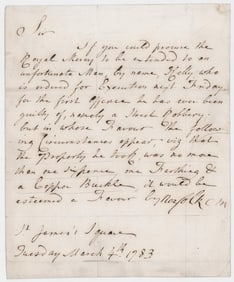 Sir
If you could procure the
Royal Mercy to be extended to an
unfortunate Man, by name Kelly who
is ordered for Execution next Friday,
for the first Offence he has ever been
guilty of, namely a Street Robbery:
but in whose Favour the follow
ing Circumstances appear, viz that
the Property he took was no more
than one sixpence, one Farthing &
a Copper Buckle, it would be
esteemed a Favour by Norfolk
St. James's Square
Tuesday March 4th. 1783